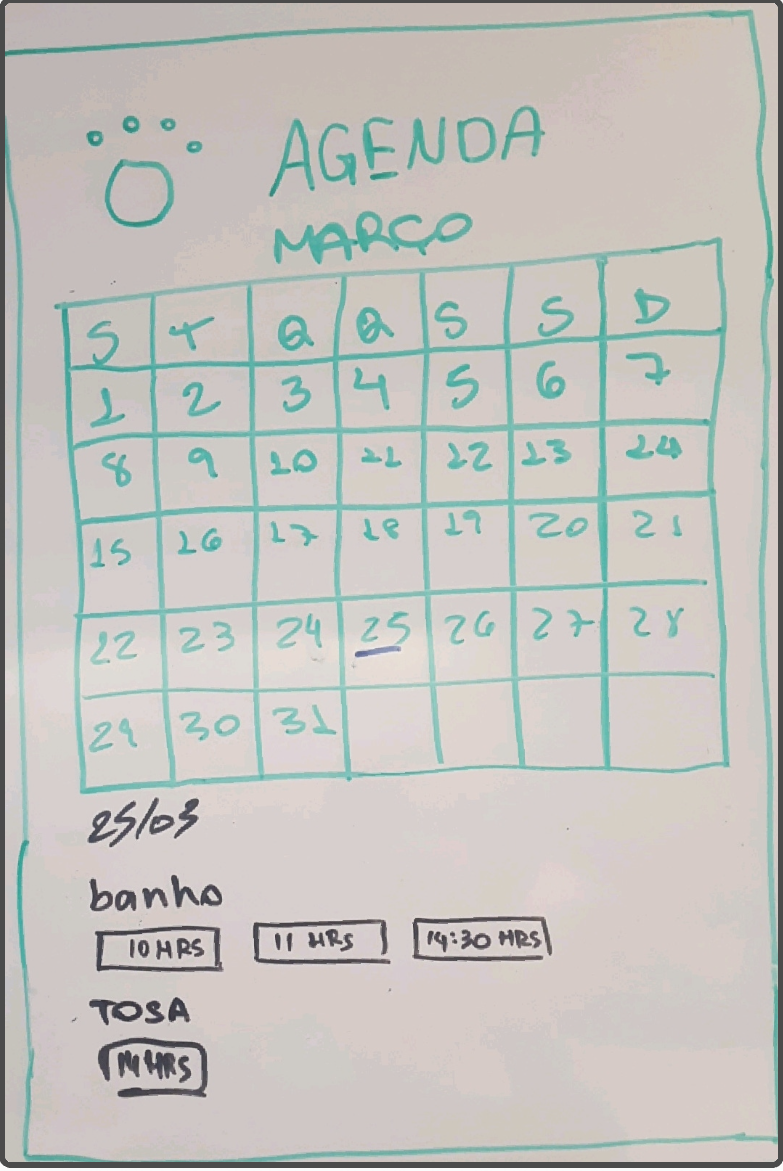 AGENDA
MARÇO
S T Q Q S S D
1 2 3 4 5 6 7
8 9 10 11 12 13 14
15 16 17 18 19 20 21
22 23 24 25 26 27 28
29 30 31
25/03
banho
10 HRS 11 HRS 14:30 HRS
TOSA
14 HRS